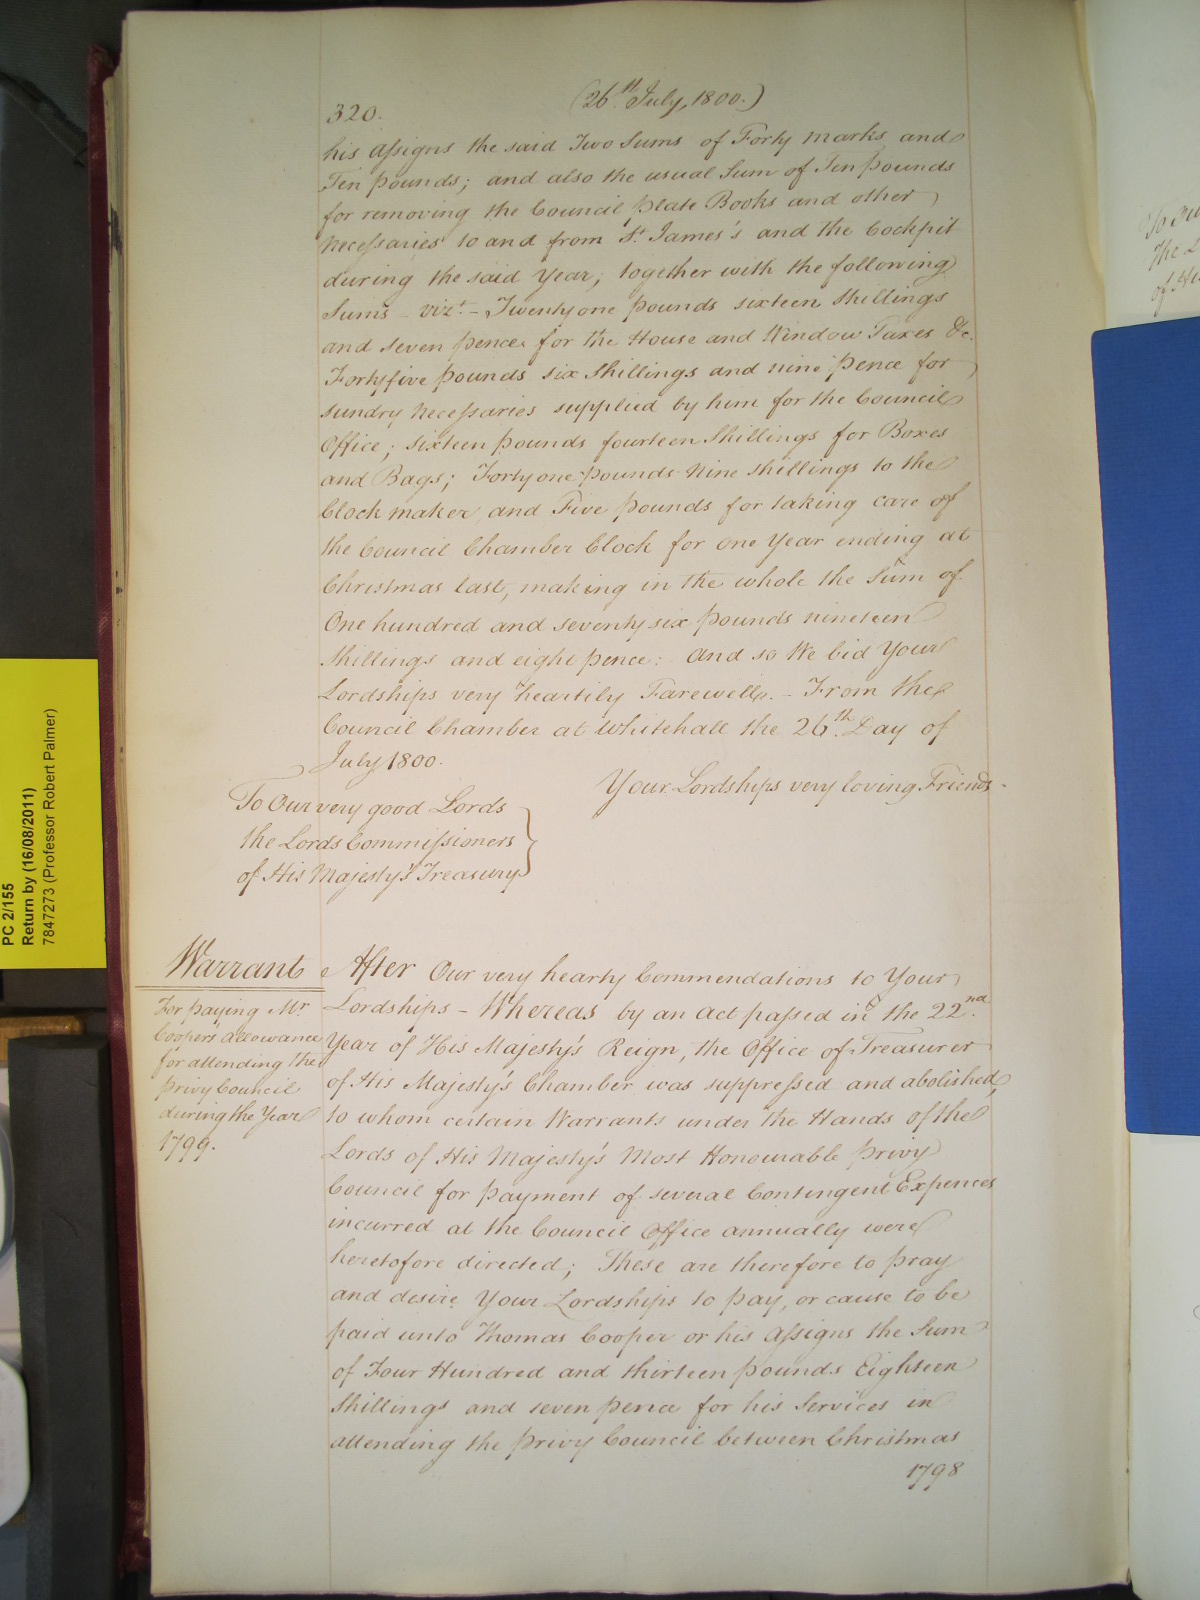 320.
(26th July, 1800.)
his assigns the said Two Sums of Forty Marks and
Ten Pounds; and also the usual Sum of Ten Pounds
for removing the Council Plate Books and other
Necessaries to and from St. James's and the Cockpit
during the said Year; together with the following
Sums – vizt. – Twenty one Pounds sixteen Shillings
and seven Pence for the House and Window Taxes &c.
Forty five Pounds six Shillings and nine Pence for
sundry Necessaries supplied by him for the Council
Office; sixteen Pounds fourteen Shillings for Boxes
and Bags; Forty one Pounds Nine Shillings to the
Clock maker, and Five Pounds for taking care of
the Council Chamber Clock for one Year ending at
Christmas last, making in the whole the Sum of
One hundred and seventy six Pounds nineteen
Shillings and eight Pence: And so We bid Your
Lordships very heartily Farewell. – From the
Council Chamber at Whitehall the 26th. Day of
July 1800.
Your Lordships very loving Friends.
To Our very good Lords
the Lords Commissioners
of His Majesty's Treasury
Warrant
For paying Mr
Cooper's allowance
for attending the
Privy Council
during the Year
1799.
After Our very hearty Commendations to Your
Lordships – Whereas by an Act passed in the 22nd.
Year of His Majesty's Reign, the Office of Treasurer
of His Majesty's Chamber was suppressed and abolished,
to whom certain Warrants under the Hands of the
Lords of His Majesty's Most Honourable Privy
Council for payment of several Contingent Expences
incurred at the Council Office annually were
heretofore directed; These are therefore to pray
and desire Your Lordships to pay, or cause to be
paid unto Thomas Cooper or his Assigns the Sum
of Four Hundred and thirteen Pounds Eighteen
Shillings and seven Pence for his Services in
attending the Privy Council between Christmas
1798
PC 2/155
Return by (16/08/2011)
7847273 (Professor Robert Palmer)
To Our
The L